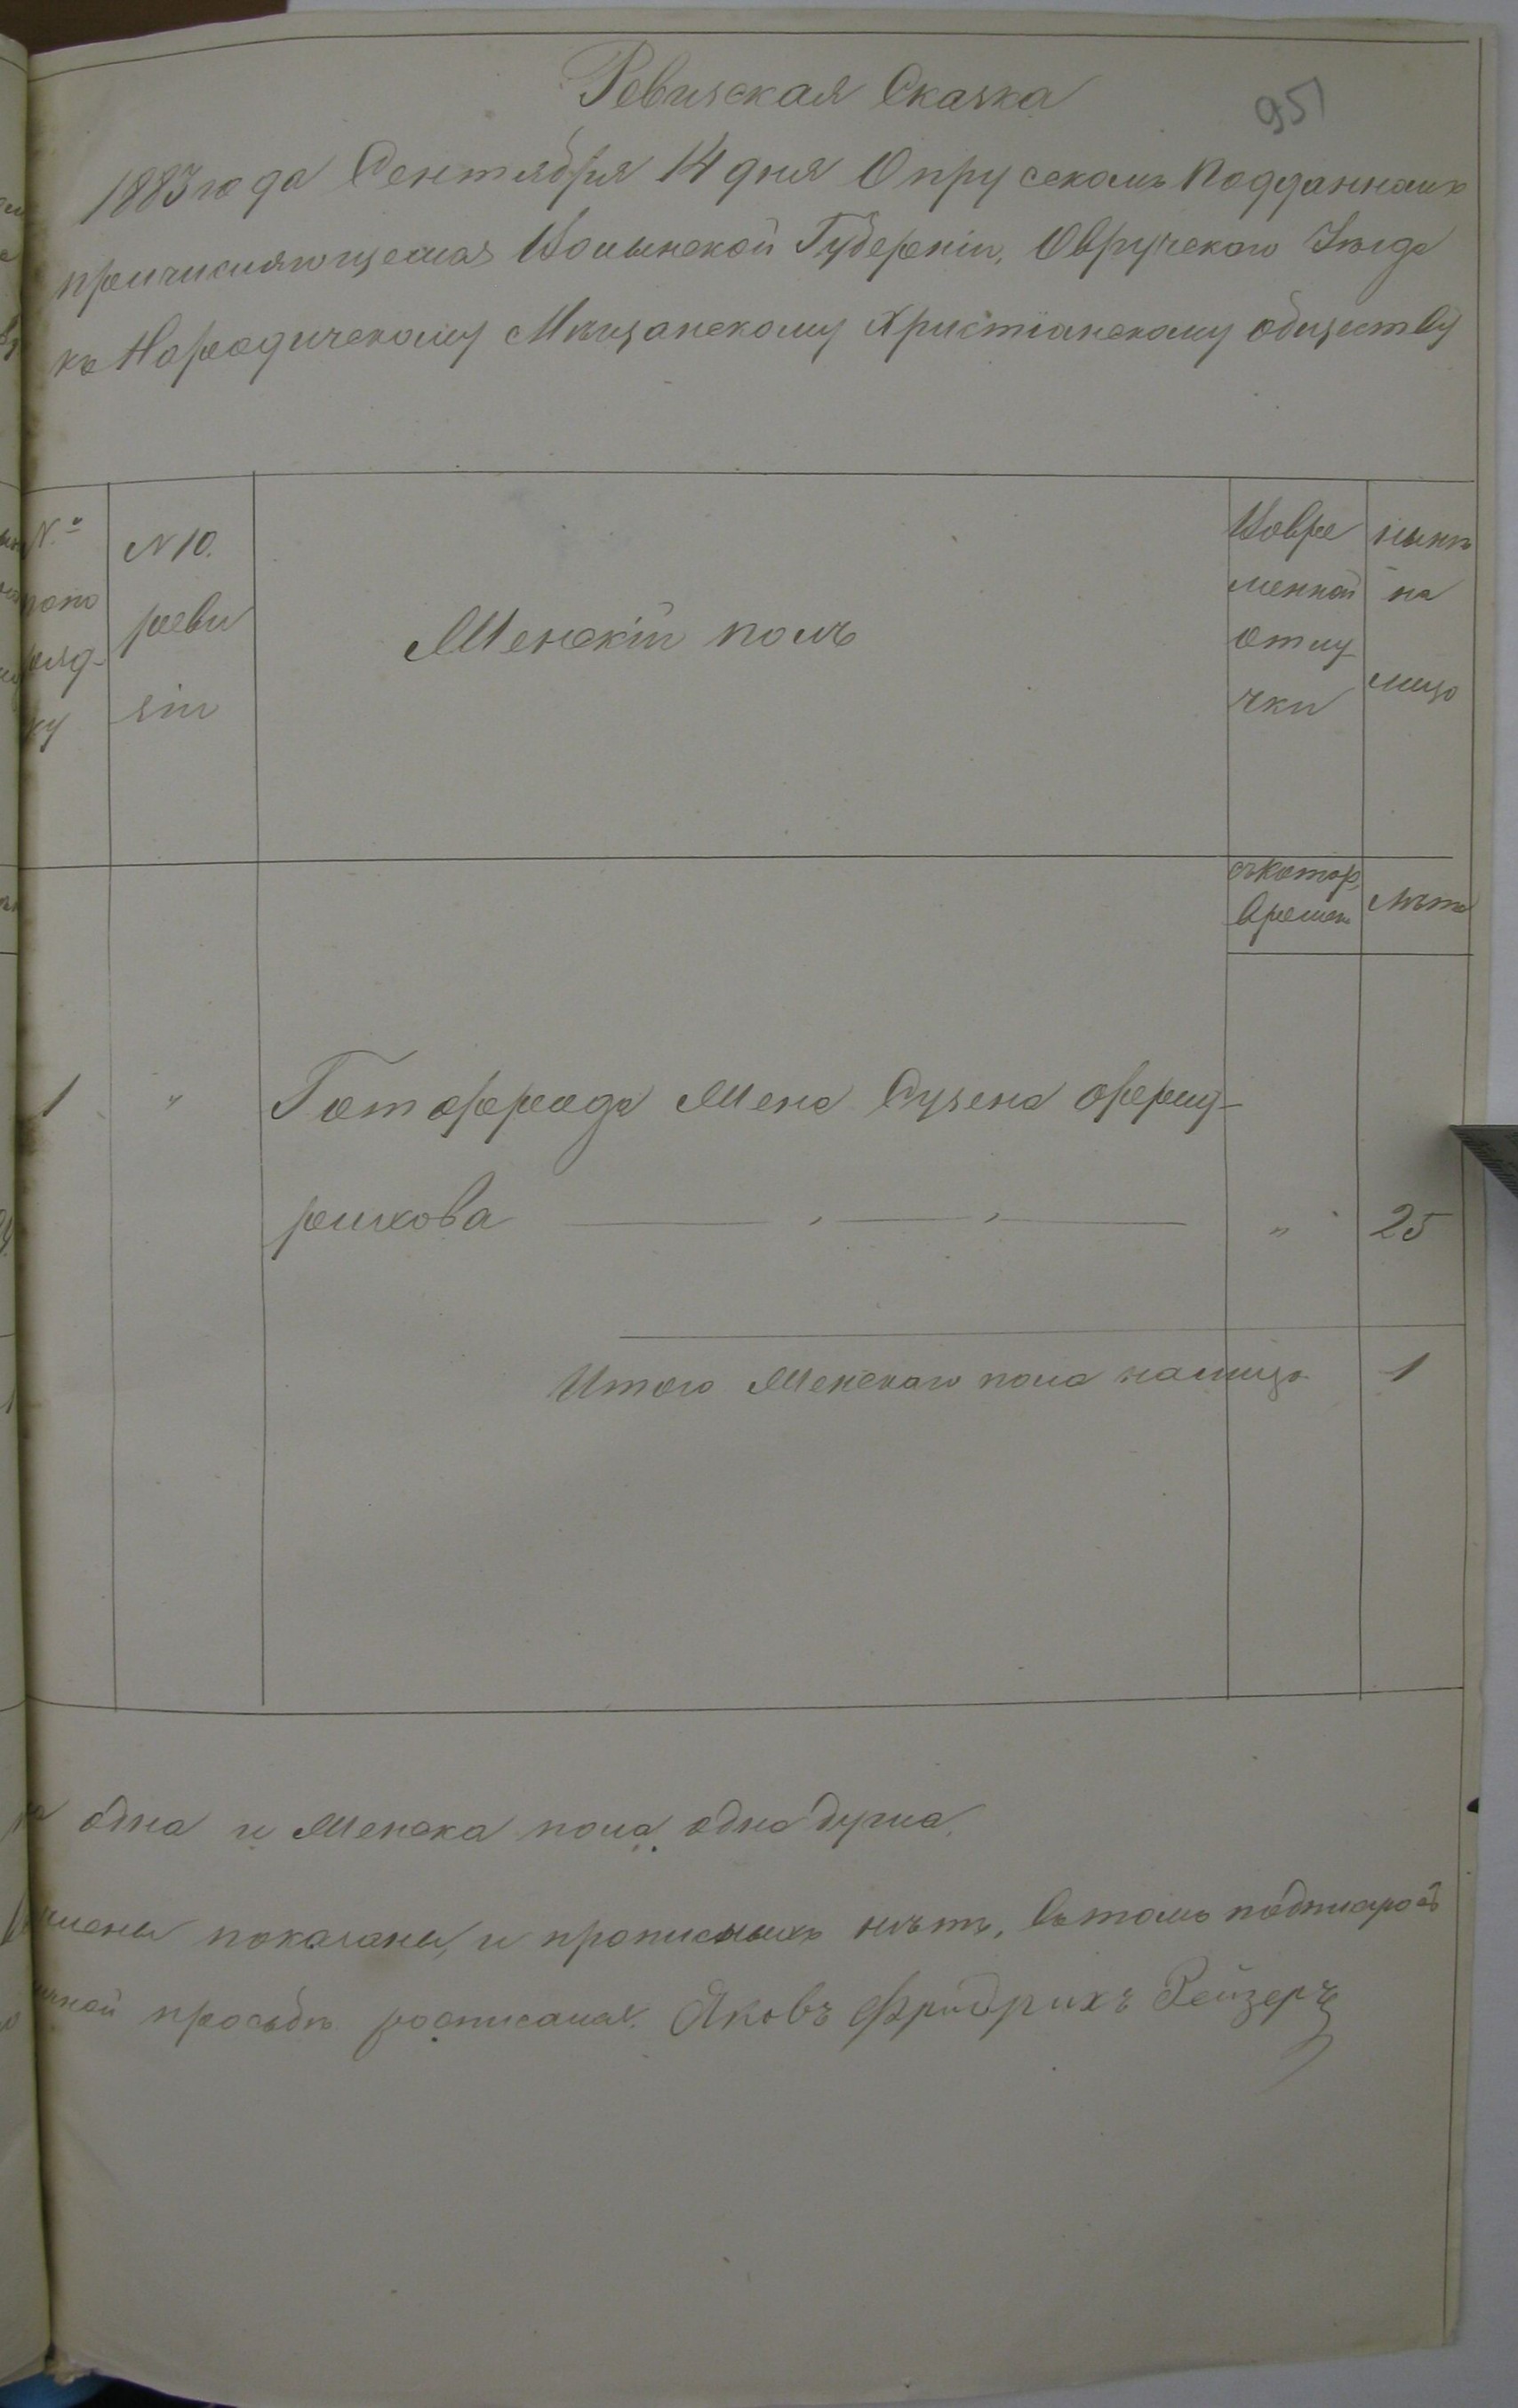 951
Ревизская Сказка
1883 года Сентября 14 дня О прусскомъ подданномъ
причисляющемся Волынской Губерніи, Овручскаго Уѣзда
къ Народичскому Мѣщанскому Христіанскому обществу
№
по
ряд-
ку
N 10.
реви
зіи
Женскій полъ
Вовре
менной
отлу
чки
нынѣ
на
лицо
съ котор.
времени
лѣта
1 " Готфрода Жена Сузена Фрид-
рихова " 25
Итого Женскаго пола налицо 1
одна и Женска пола одна душа.
показаны, и прописныхъ нѣтъ, въ томъ
просьбѣ росписался. Яковъ Фридрихъ Рейзеръ